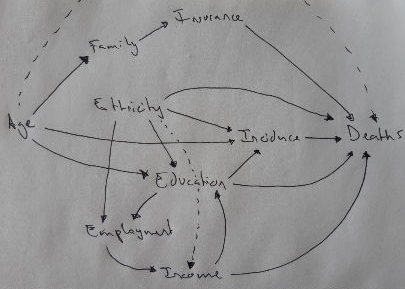 Insurance
Family
Ethnicity
Age
Incidence
Deaths
Education
Employment
Income